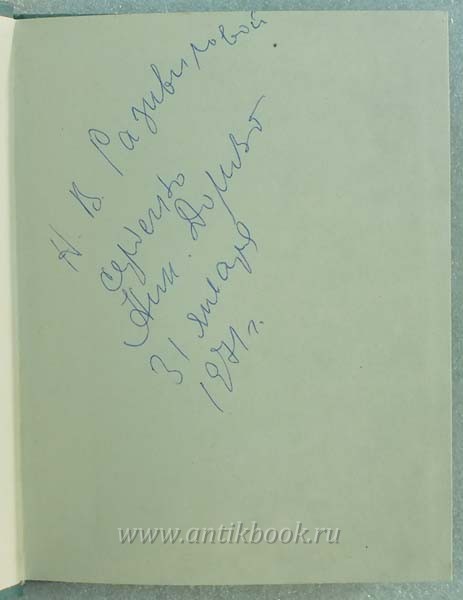 Н. В. Разживиловой
сердечно
Ник. Доризо
31 января
1971 г.
www.antikbook.ru